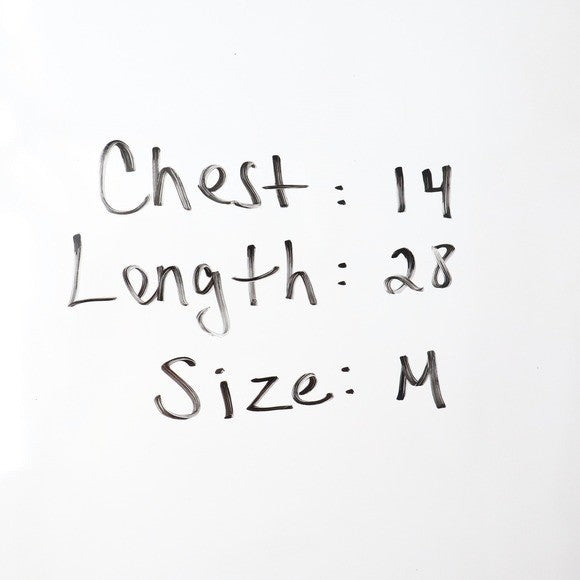 Chest: 14
Length: 28
Size: M